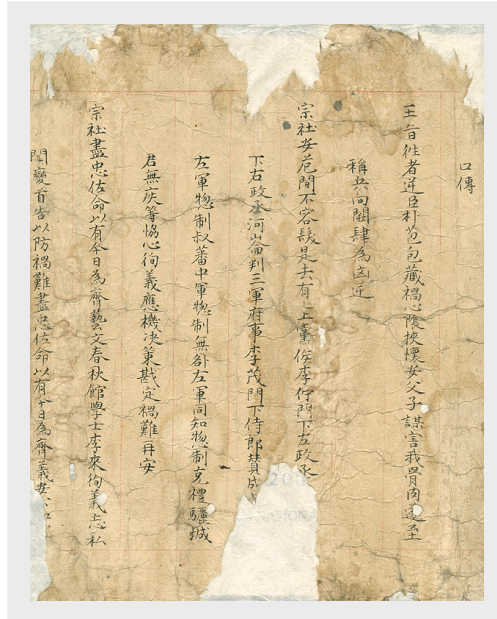 口傳
王旨徃者逆臣朴苞包藏禍心陰挾懷安父子謀害我骨肉遂至
稱兵向闕肆為凶逆
宗社安危間不容髮是去有上黨侯李佇門下左政丞
下右政丞河崙判三軍府事李茂門下侍郎賛成
左軍惣制叔蕃中軍惣制無咎左軍同知惣制克禮驪城
君無疾等恊心徇義應機决策戡定禍難再安
宗社盡忠佐命以有今日為齊藝文春秋館學士李來徇義忘私
聞變首告以防禍難盡忠佐命以有今日為齊義安